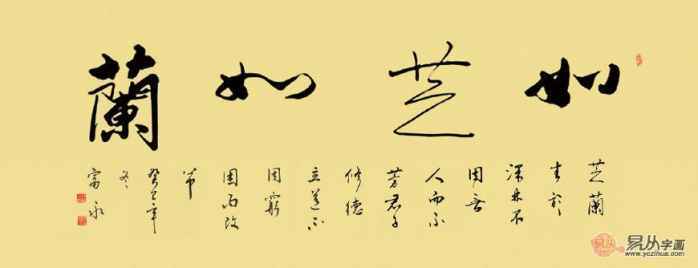 如芝如蘭
芝蘭
生於
深林不
因无
人而不
芳君子
修德
立道不
因窮
困而改
节
癸巳年
冬
富永
易从字画
www.yczihua.com